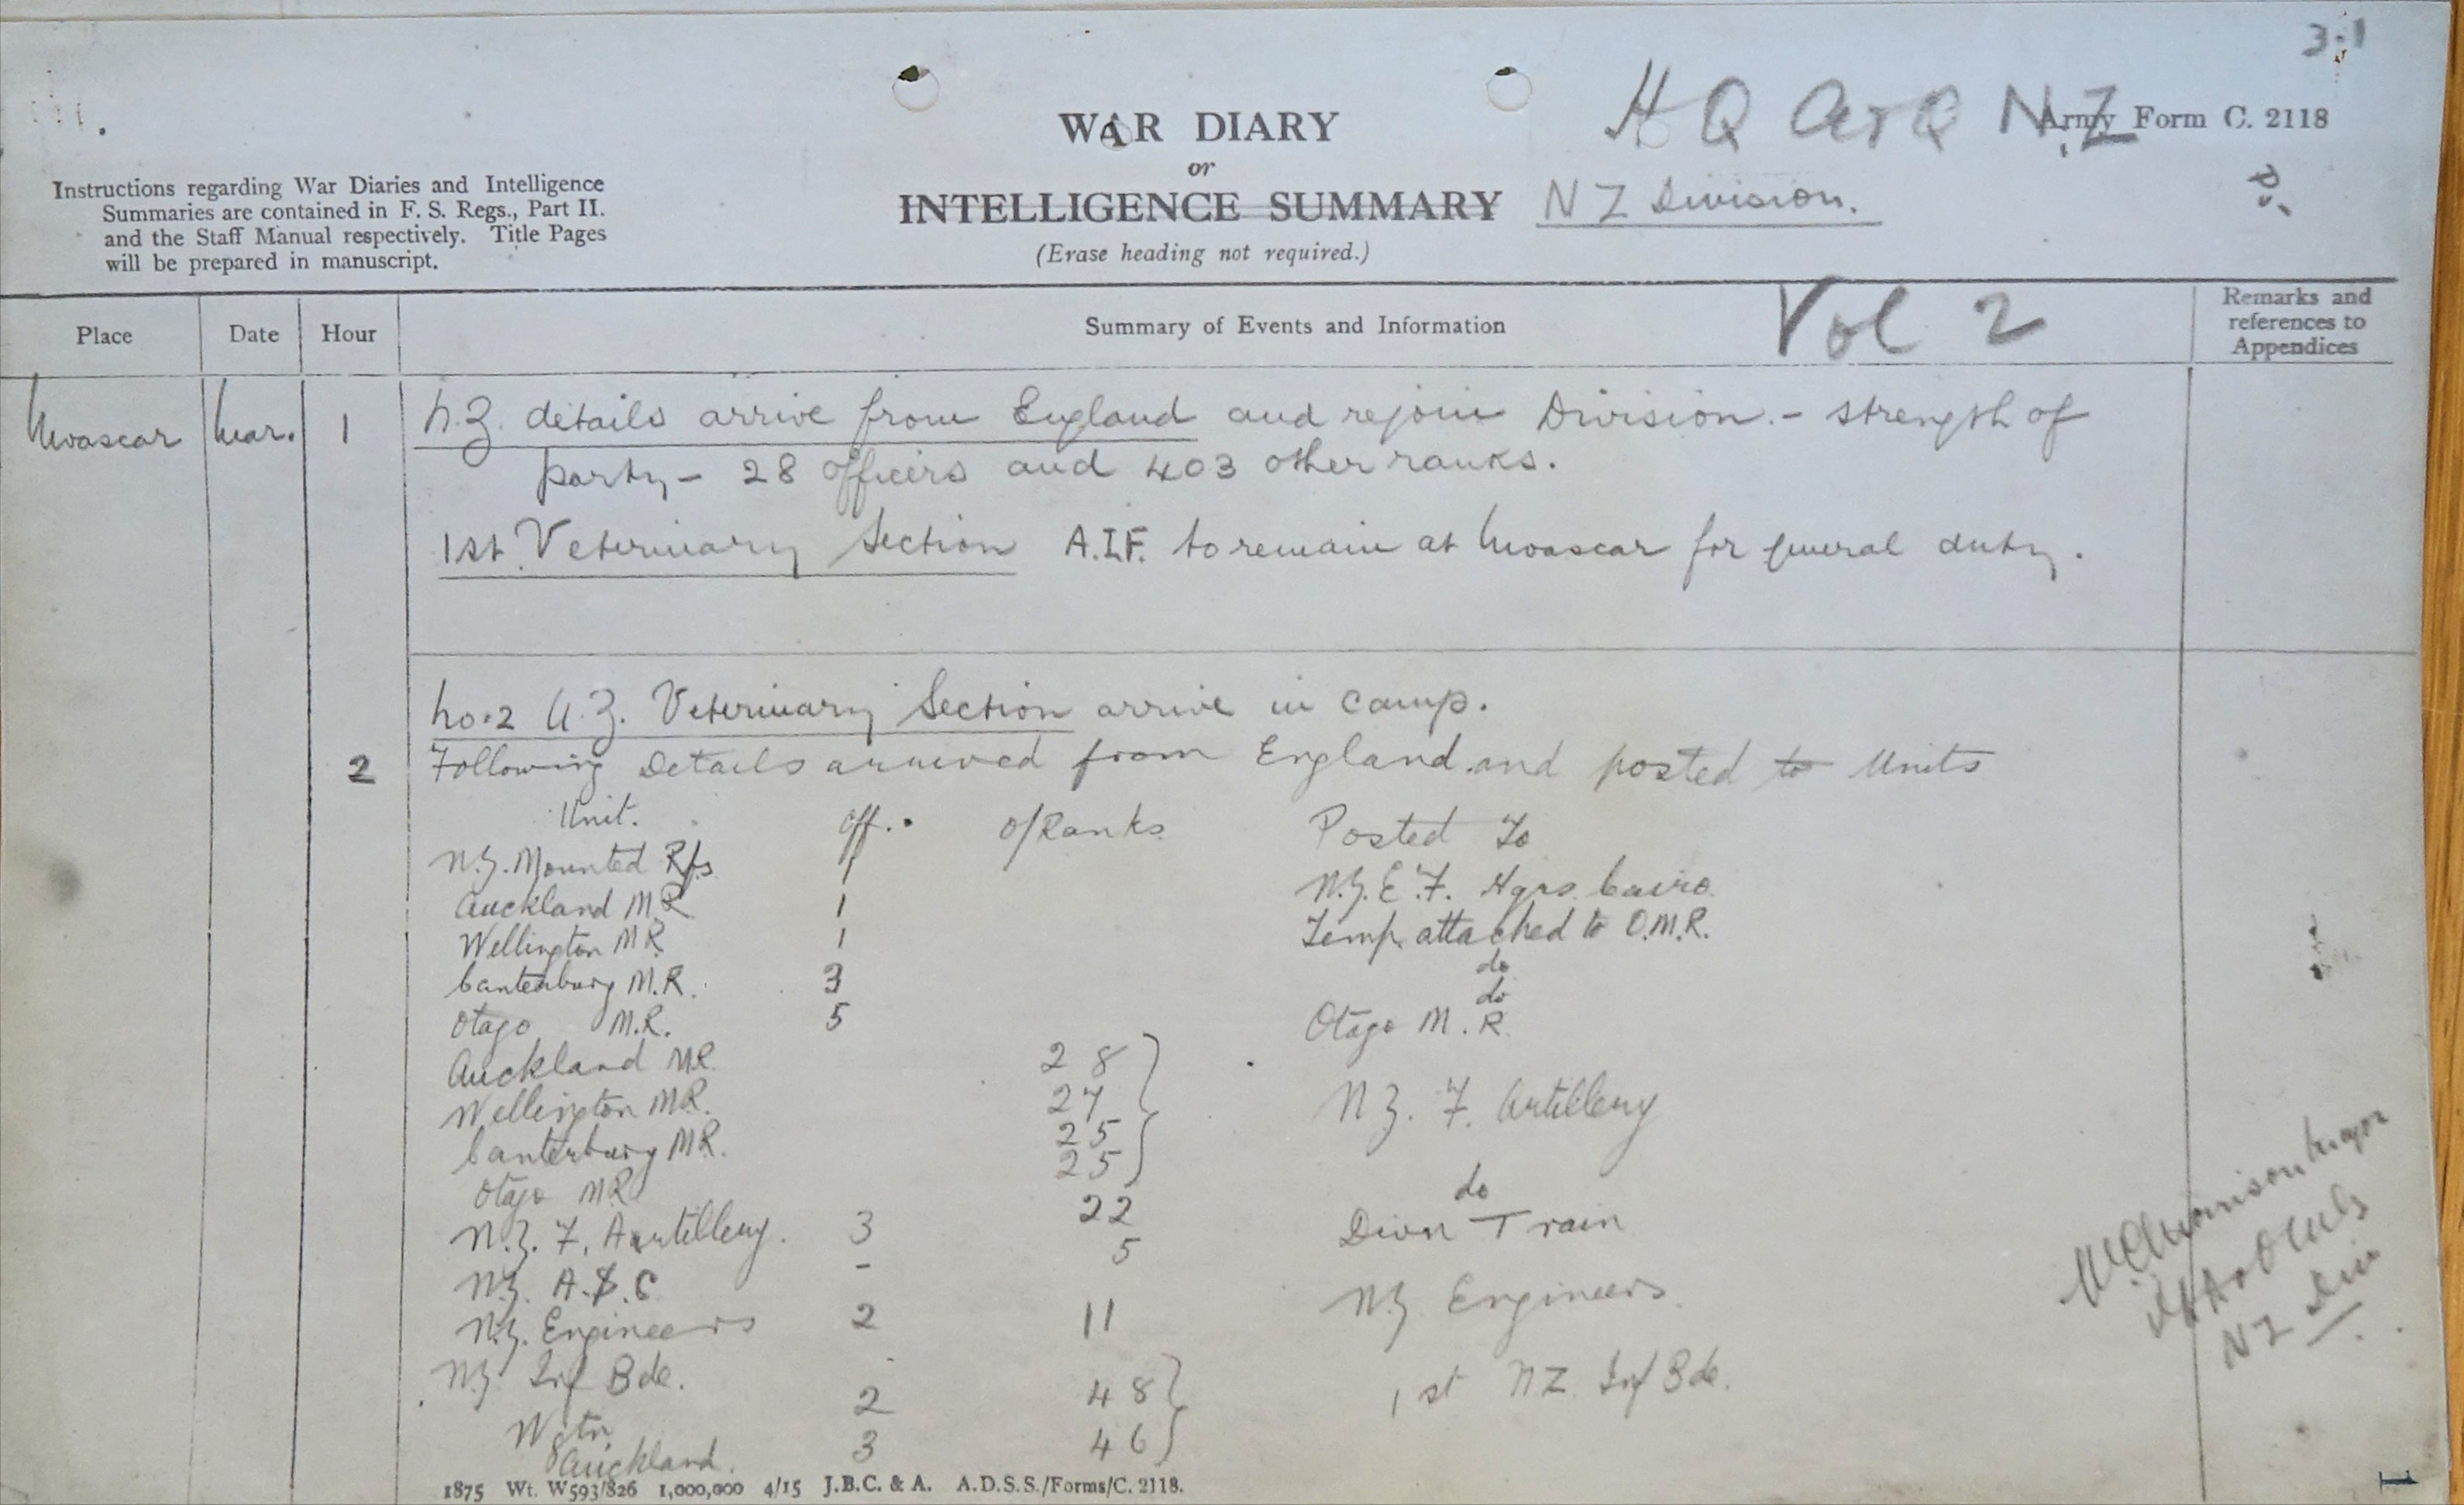 3.1
WAR DIARY
or
INTELLIGENCE SUMMARY
(Erase heading not required.)
H Q A & Q N.Z
Army Form C. 2118
NZ Division.
Instructions regarding War Diaries and Intelligence
Summaries are contained in F. S. Regs., Part II.
and the Staff Manual respectively. Title Pages
will be prepared in manuscript.
Place Date Hour Summary of Events and Information Vol 2 Remarks and references to Appendices
Moascar Mar. 1 N.Z. details arrive from England and rejoin Division. - strength of
party - 28 officers and 403 other ranks.
1st. Veterinary Section A.I.F. to remain at Moascar for general duty.
No. 2 N.Z. Veterinary Section arrive in camp.
2 Following Details arrived from England and posted to Units
Unit. Off. O/Ranks Posted To
N.Z. Mounted Rfs 1 N.Z.E.F. Hqrs. Cairo
Auckland M.R 1 Temp. attached to O.M.R.
Wellington M.R. 1 do
Canterbury M.R. 3 do
Otago M.R. 5 Otago M.R.
Auckland M.R. 28
Wellington M.R. 27 N.Z.F. Artillery
Canterbury M.R. 25
Otago M.R. 25
N.Z.F. Artillery. 3 22 do
N.Z. A.S.C - 5 Divn Train
N.Z. Engineers 2 11 N.Z. Engineers
N.Z. Inf Bde.
Wgtn. 2 48 1st NZ Inf Bde.
Auckland. 3 46
Major
NZ Div
1875 Wt. W593/826 1,000,000 4/15 J.B.C. & A. A.D.S.S./Forms/C. 2118.
1